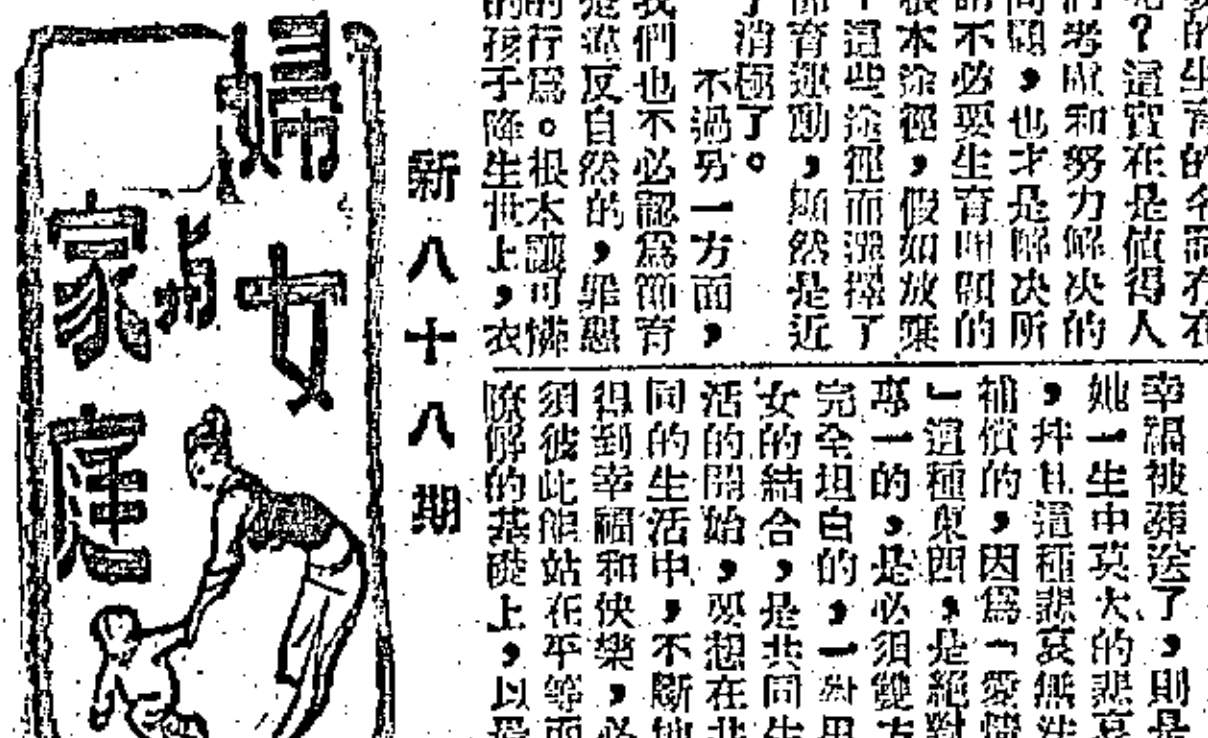 的生育的全部存在
呢?這實在是值得人
們考慮和努力解決的
問題,也才是解決所
謂不必要生育問題的
根本途徑,假如放棄
這些途徑而選擇了
節育運動,顯然是近
乎消極了。
不過另一方面,
我們也不必認為節育
是違反自然的,罪惡
的行為。根本讓可憐
的孩子降生世上,衣
幸福被葬送了,則是
她一生中莫大的悲哀
,并且這種悲哀無法
補償的,因為「愛情
」這種東西,是絕對
專一的,是必須雙方
完全坦白的,一對男
女的結合,是共同生
活的開始,要想在共
同的生活中,不斷地
得到幸福和快樂,必
須彼此能站在平等而
瞭解的基礎上,以愛
新八十八期
婦女
與
家庭